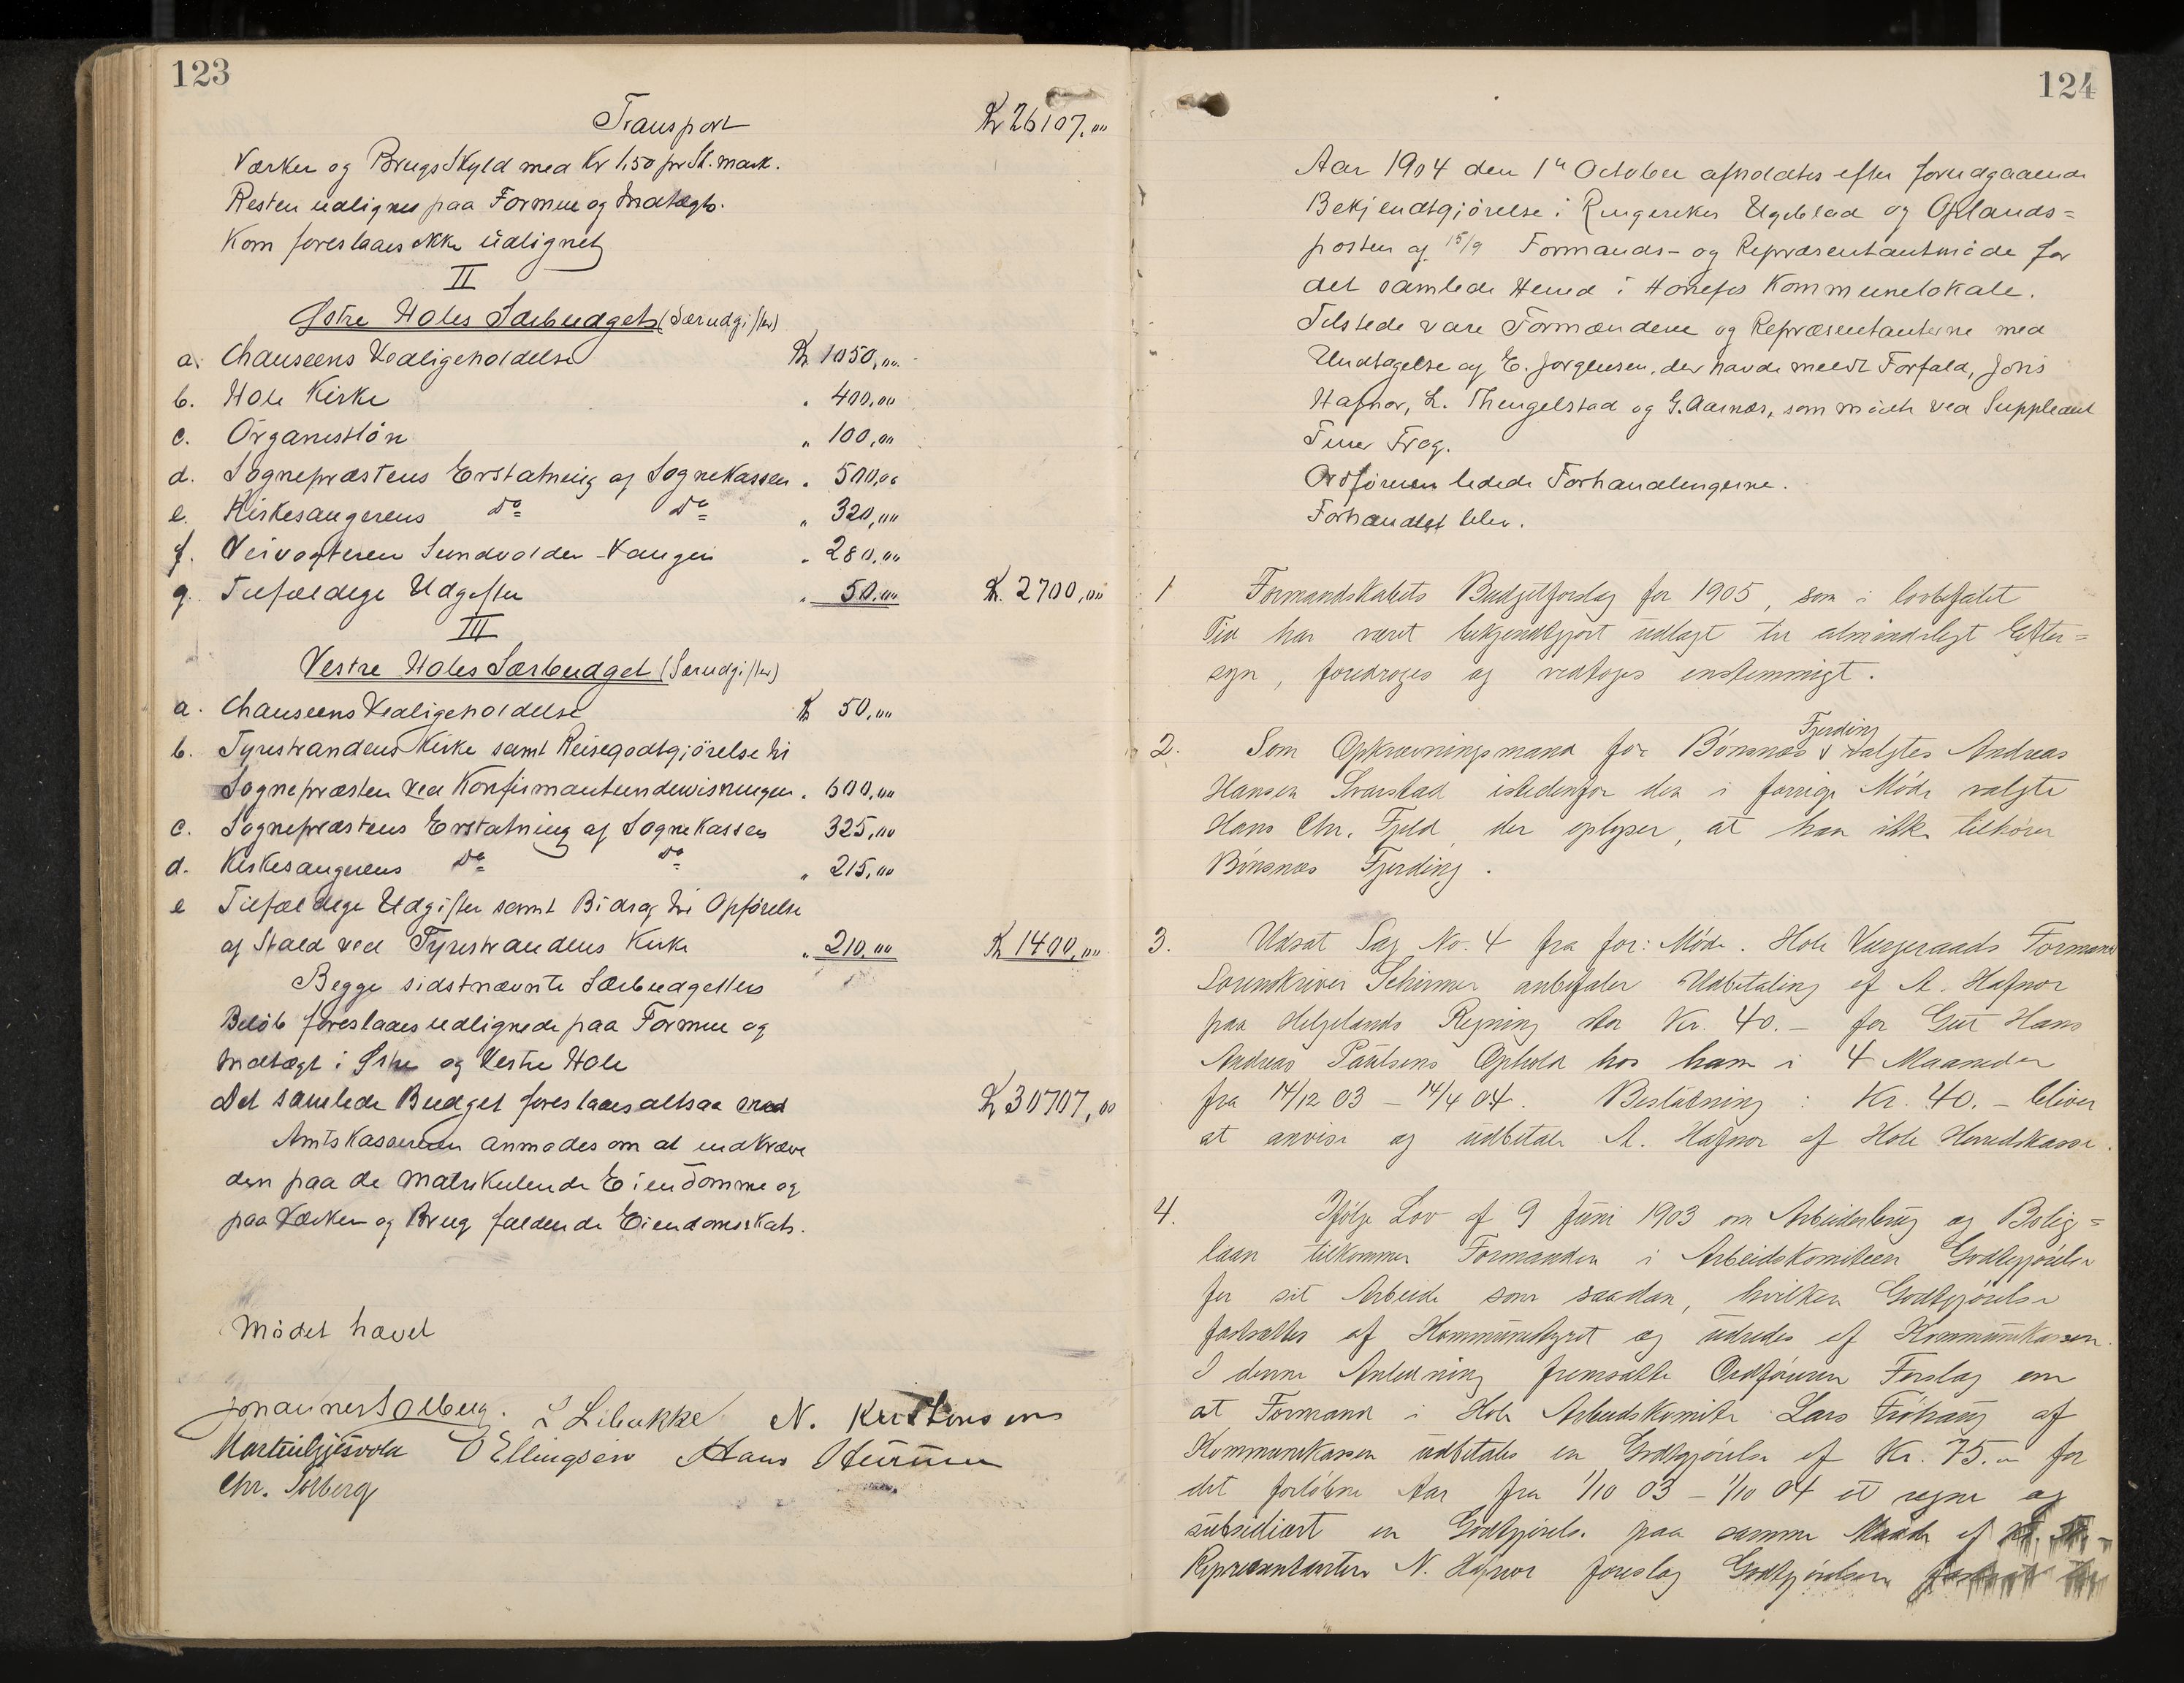 123
Transport Kr 26107,00
Værker og Brugs Skyld med Kr 1,50 pr Sk. mark.
Resten udlignes paa Formue og Indtægt.
Korn foreslaaes ikke udlignet
II
Østre Holes Særbudget (Særudgifter)
a. Chauseens Vedligeholdelse Kr 1050,00
b. Hole Kirke " 400,00
c. Organistløn " 100,00
d. Sognepræstens Erstatning af Sognekassen " 500,00
e. Kirkesangerens do do " 320,00
f. Veivogteren Sundvolden - " 280,00
g. Tilfældige Udgifter " 50,00 Kr. 2700,00
III
Vestre Holes Særbudget (Særudgifter)
a. Chauseens Vedligeholdelse Kr 50,00
b. Tyristrandens Kirke samt Reisegodtgjörelse til
Sognepræsten ved Konfirmantundervisningen " 600,00
c. Sognepræstens Erstatning af Sognekassen 325,00
d. Kirkesangerens do do " 215,00
e Tilfældige Udgifter samt Bidrag til Opförelse
af Stald ved Tyristrandens Kirke " 210,00 Kr 1400,00
Begge sidstnævnte Særbudgetters
Belöb foreslaaes udlignede paa Formue og
Indtægt i Østre og Vestre Hole
Det samlede Budget foreslaaes altsaa med Kr 30707,00
Amtskassereren anmodes om at indkræve
den paa de matrikulerede Eiendomme og
paa Værker og Brug faldende Eiendomsskat.
Mödet hævet
Johannes Solberg. L Libakke N. Kristensens
Martin Gjesvold O Ellingsen Hans
Chr. Solberg
124
Aar 1904 den 1te October afholdtes efter forudgaaende
Bekjendtgjörelse i Ringerikes Ugeblad og Oplands=
posten af 15/9 Formands- og Repræsentantmöde for
det samlede Herred i Hönefos Kommunelokale.
Tilstede vare Formændene og Repræsentanterne med
Undtagelse af E. Jörgensen, der havde meldt Forfald, Jöns
Hafnor, L. Thengelstad og G. Aasnæs, som mödte ved Suppleant
Frog.
Ordföreren ledede Forhandlingerne.
Forhandlet blev.
1 Formandskabets Budgetforslag for 1905, som i lovbefalet
Tid har været bekjendtgjort udlagt til almindeligt Efter=
syn, foredroges og vedtoges enstemmigt.
2. Som Opkrævningsmand for Bönsnæs Fjerding valgtes Andreas
Hansen Svarstad istedenfor den i forrige Möde valgte
Hans Chr. Fjeld, der oplyser, at han ikke tilhörer
Bönsnæs Fjerding.
3. Udsat Sag No. 4 fra for: Möde. Hole Vergeraads Formand
Sorenskriver Schirmer anbefaler Udbetaling af A. Hafnor
paa Helgelands Regning stor Kr. 40.- for Gut Hans
Andreas Paulsens Ophold hos ham i 4 Maaneder
fra 14/12 03 - 14/4 04. Beslutning: Kr. 40.- bliver
at anvise og udbetale A. Hafnor af Hole Herredskasse.
4. Ifölge Lov af 9 Juni 1903 om Arbeiderbrug og Bolig=
laan tilkommer Formanden i Arbeidskomiteen Godtgjörelse
for sit Arbeide som saadan, hvilken Godtgjörelse
fastsættes af Kommunestyret og udredes af Kommunekassen.
I denne Anledning fremsatte Ordföreren Forslag om
at Formand i Hole Arbeidskomite Lars Fröhaug af
Kommunekassen udbetales en Godtgjörelse af Kr. 75.- for
det forlöbne Aar fra 1/10 03 - 1/10 04 at regne og
subsidiært en Godtgjörelse paa samme Maade af
Repræsentanten N. Hafnor foreslog Godtgjörelsen